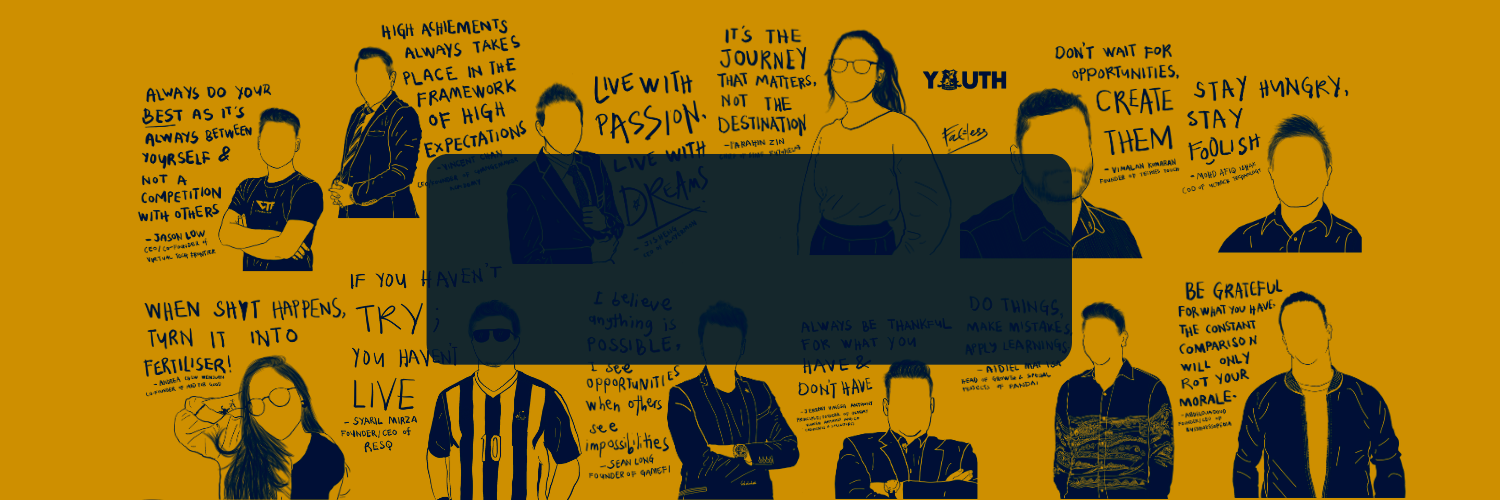 ALWAYS DO YOUR
BEST AS IT'S
ALWAYS BETWEEN
YOURSELF &
NOT A
COMPETITION
WITH OTHERS
- JASON LOW
CEO/CO-FOUNDER of
VIRTUAL TECH FRONTIER
HIGH ACHIEMENTS
ALWAYS TAKES
PLACE IN THE
FRAMEWORK
OF HIGH
EXPECTATIONS
LIVE WITH
PASSION.
LIVE WITH
DREAMS
IT'S THE
JOURNEY
THAT MATTERS,
NOT THE
DESTINATION
- FARAHIN ZIN
YOUTH
Faceless
DON'T WAIT FOR
OPPORTUNITIES,
CREATE
THEM
- VIMALAN KUMARAN
FOUNDER OF
STAY HUNGRY,
STAY
FOOLISH
- MOHD AFIQ
WHEN SHYT HAPPENS,
TURN IT INTO
FERTILISER!
IF YOU HAVEN'T
TRY;
YOU HAVEN'T
LIVE
- SYARIL MIRZA
FOUNDER/CEO of
RESQ
I believe
anything is
POSSIBLE,
I see
OPPORTUNITIES
when others
see
impossibilities
- SEAN LONG
FOUNDER OF GAMEFI
ALWAYS BE THANKFUL
FOR WHAT YOU
HAVE &
DON'T HAVE
DO THINGS,
MAKE MISTAKES,
APPLY LEARNINGS
- AIDIEL
HEAD OF GROWTH & SPECIAL
PROJECTS OF PANDAI
BE GRATEFUL
FOR WHAT YOU HAVE.
THE CONSTANT
COMPARISON
WILL ONLY
ROT YOUR
MORALE.
10